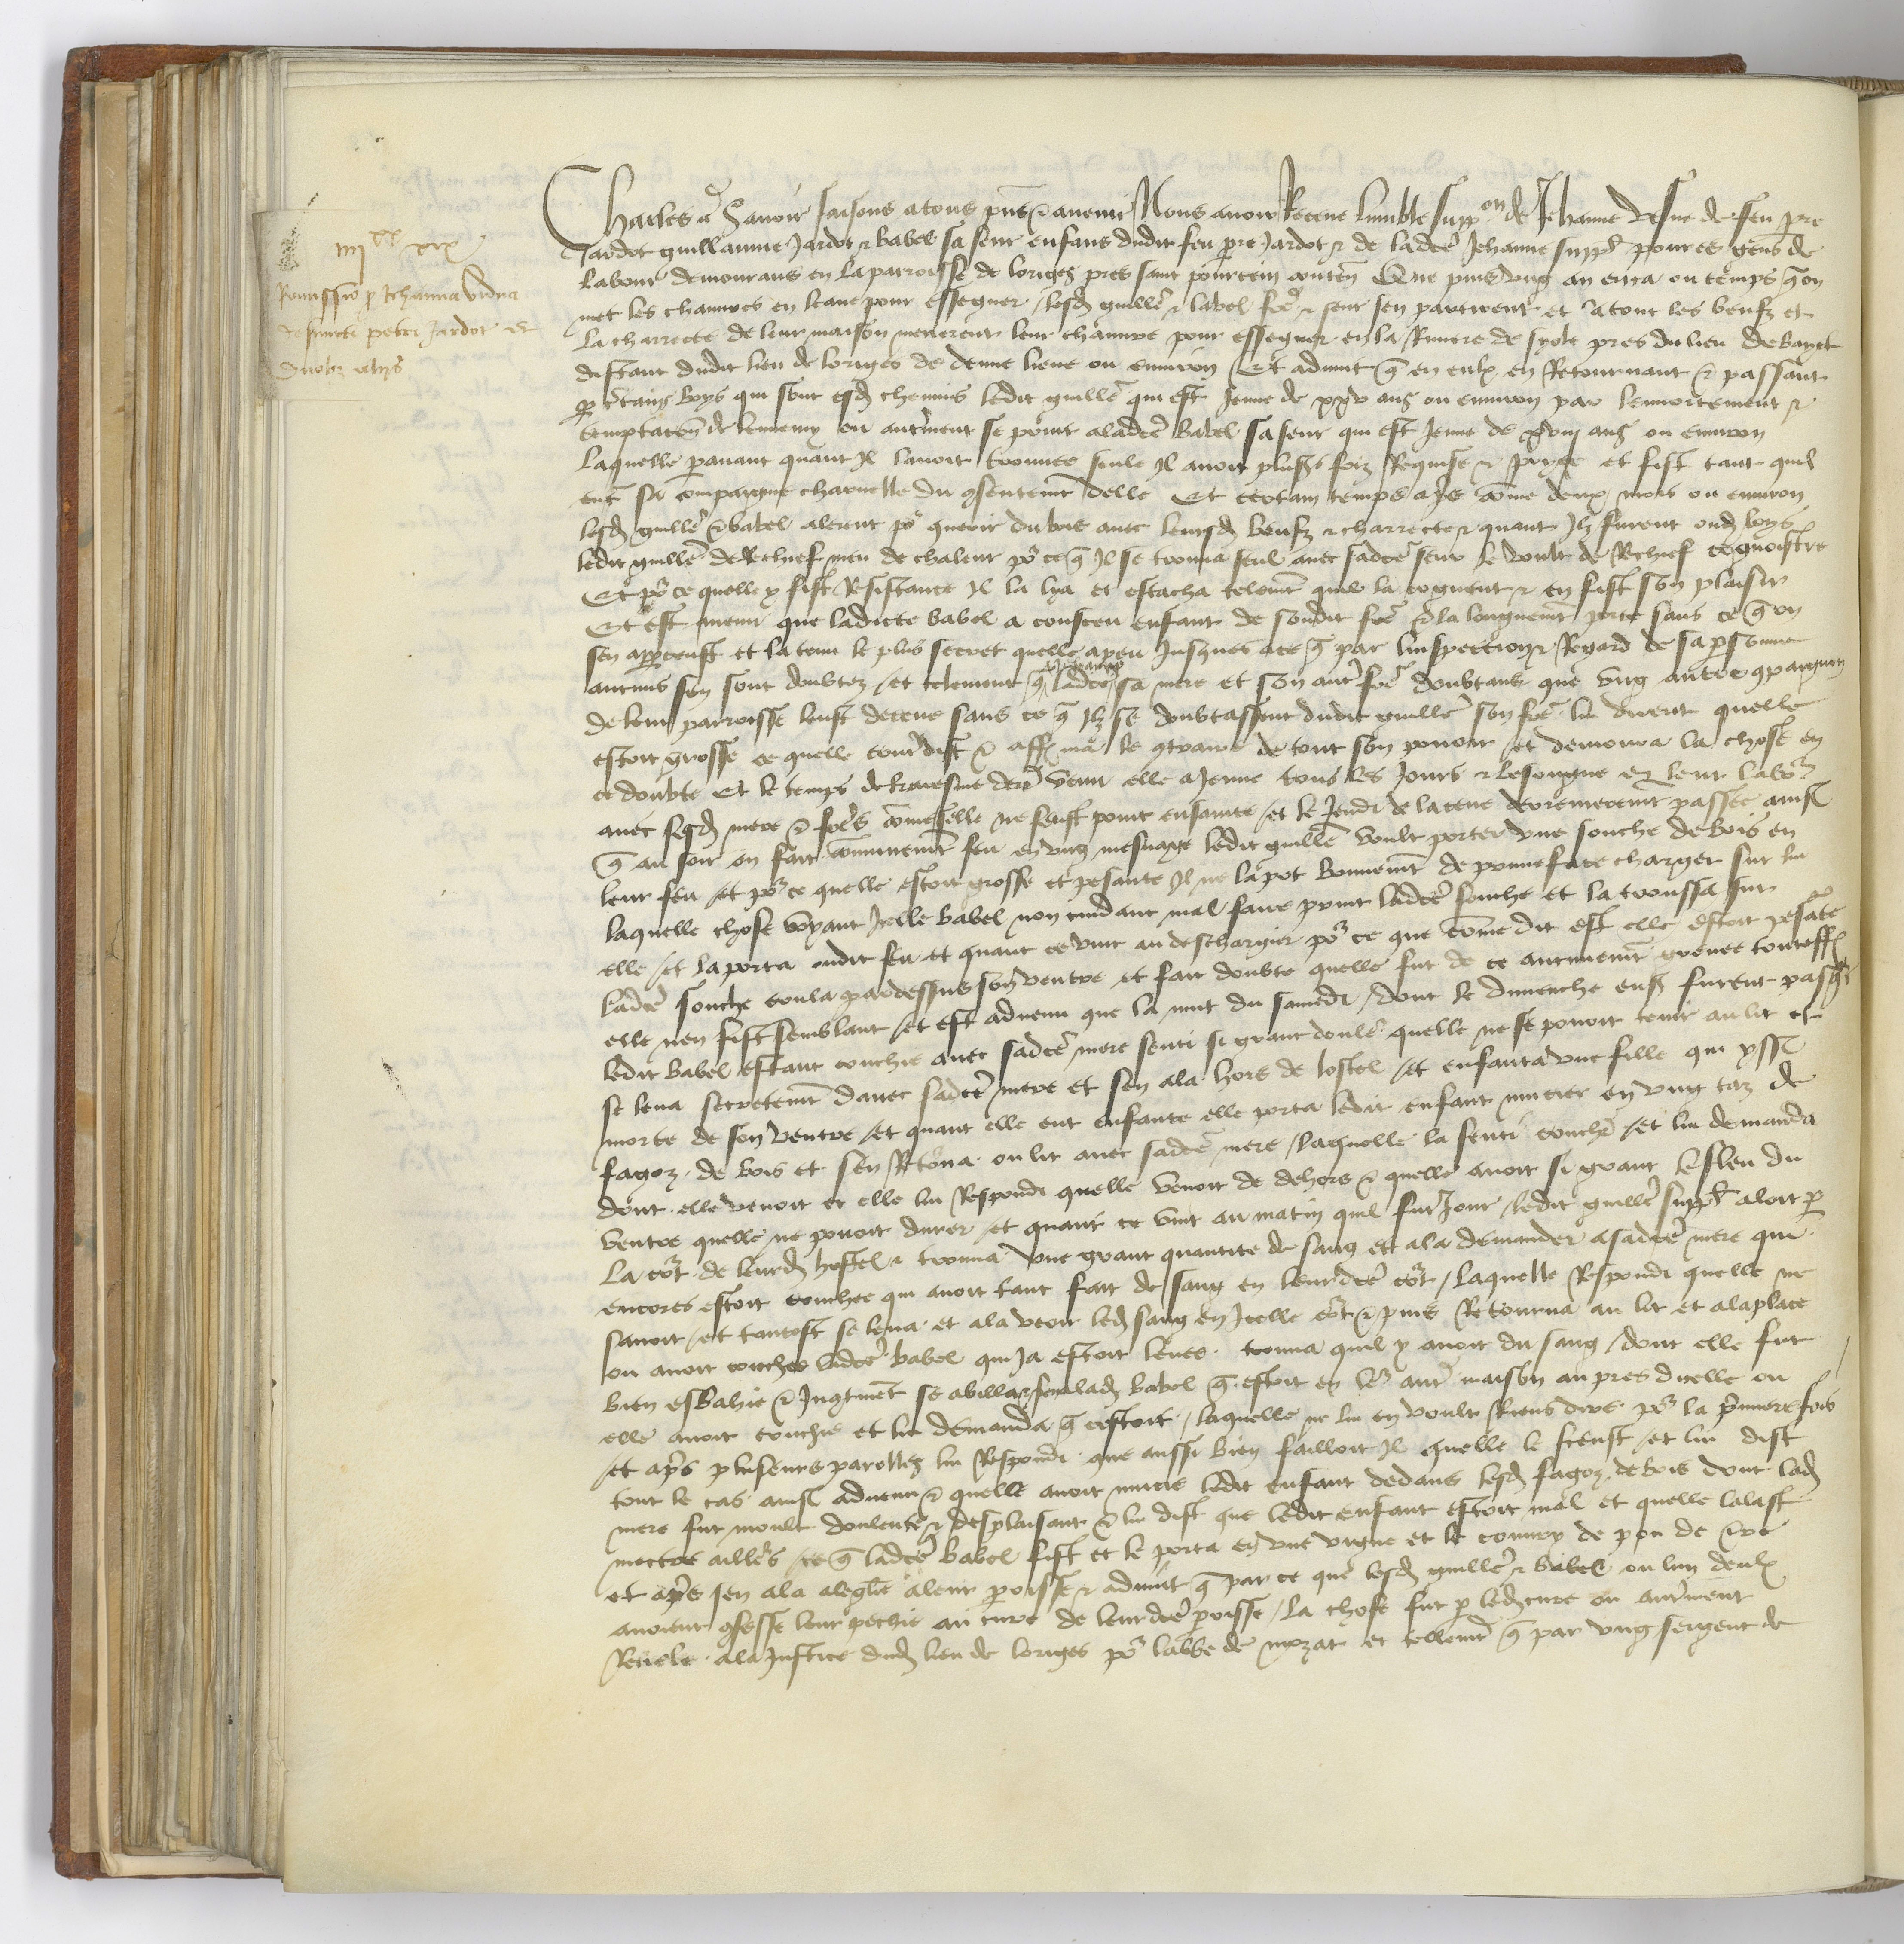 iiii^xx xix
Remissio p Jehanna vidua
defuncti petri Jardot et
duobz aliis
Charles etc Savoir faisons a tous pns et avenir Nous avoir Receue lumble supp^on de Jehanne vesve de feu pre
Jardot guillaume Jardot et babel sa seur enfans dudit feu pre Jardot et de ladce Jehanne supps povres gens de
labour demourans en la parroisse de loriges pres saint pourcein conten Que puis ung an enca ou temps q on
met les chanvres en leaue pour essegner lesd guille et babel fre et seur sen partirent et atout les beufz et
la charrecte de leur maison menerent leur chanvre pour essegner en la Riviere de syole pres du lieu de bayet
distant dudit lieu de loriges de demie lieue ou environ Et advint q en eulx en Retournant et passant
p ctains boys qui sont esd chemins ledit guille qui est jeune de xxv ans ou environ par lennortement et
temptacon de lennemy ou autrement se joint a ladce babel sa seur qui est jeune de xviii ans ou environ
laquelle paravant quant il lavoit trouvee seule il avoit plus foiz Requise et priee et fist tant quil
eut sa compaignie charnelle du consentemt delle Et certain temps apres come deux mois ou environ
lesd guille et babel alerent po querir du bois avec leursd beufz et charrecte et quant ilz furent oud boys
ledit guille de Rechief meu de chaleur po ce q il se trouva seul avec sadce seur le voult de Rechief cognoistre
Et po ce quelle y fist Resistance il la lya et estacha telemt quil la cogneut et en fist son plaisir
Et est avenu que ladicte babel a conceu enfant de sondit fre et la longuemt porte sans ce q on
sen appceust et la tenu le plus secret quelle a peu Jusques a ce q par linspection et Regard de sa personne
aucuns sen sont doubtez et telement q ladce sa mere et son autre fre doubtans que ung autre compaignon
de leur parroisse leust deceue sans ce q ilz se doubtassent dudit guille son fre lui dirent quelle
estoit grosse ce quelle contredist et afferma le contraire de tout son povoir et demoura la chose en
ce doubte Et le temps de karesme dern venu elle a jeune tous les jours et besongne en leur labo
avec sesd mere et freres come selle ne feust point ensainte et le jeudi de la cene derrenieremt passee ainsi
q au soir on fait communemt feu en ung mesnage ledit guille voult porter une souche de bois en
leur feu et po ce quelle estoit grosse et pesante il ne la pot bonnemt de prinseface charger sur lui
laquelle chose voyant icelle babel non cuidant mal faire print ladce souche et la troussa sur
elle et la porta oudit feu et quant ce vint au deschargier po ce que come dit est elle estoit pesate
ladce souche coula pardessus son ventre et fait doubte quelle fut de ce aucunemt grevee toutessfois
elle nen fist semblant et est advenu que la nuit du samedi dont le dimenche ens furent pasqs
ledit babel estant couchie avec sadce mere senti si grant doule quelle ne se povoit tenir au lit et
se leva secretemt davec sadce mere et sen ala hors de lostel et enfanta une fille qui yssi
morte de son ventre et quant elle eut enfante elle porta ledit enfant muctier en ung taz de
fagoz de bois et sen Retorna ou lit avec sadce mere laquelle la senti couche et lui demanda
dont elle venoit et elle lui Respondi quelle venoit de dehors et quelle avoit si grant le fleu du
ventre quelle ne povoit durer et quant ce vint au matin quil fut jour ledit guille suppt aloit p
la cort de leurd hostel et trouva une grant quantite de sang et ala demander a sadce mere qui
encores estoit couchee qui avoit tant fait de sang en leurdce cort laquelle Respondi quelle ne
savoit et tantost se leva et ala veoir led sang en icelle cort et puis Retourna au lit et a la place
ou avoit couche ladce babel qui ja estoit levee trouva quil y avoit du sang dont elle fut
bien esbahie et incontinent se abilla et sen ala a lad babel q estoit en leur autre maison aupres dicelle ou
elle avoit couchie et lui demanda q cestoit laquelle ne lui en voult Riens dire po la premiere fois
et apres pluseurs parolles lui Respondi que aussi bien failloit il quelle le sceust et lui dist
tout le cas ainsi advenu et quelle avoit mucie ledit enfant dedans lesd fagoz de bois dont lad
mere fut moult doulente et desplaisant et lui dist que ledit enfant estoit mal et quelle lalast
mectre ailleurs ce q ladce babel fist et le porta en une vigne et le couvry de pou de tre
et apres sen ala a leglise a leur poisse et advint q par ce que lesd guille et babel ou lun deulx
avoient confesse leur pechie au cure de leurdce poisse la chose fut p led cure ou autrement
Revelee a la justice dud lieu de loriges po labbe de mozat et tellemt q par ung sergent de